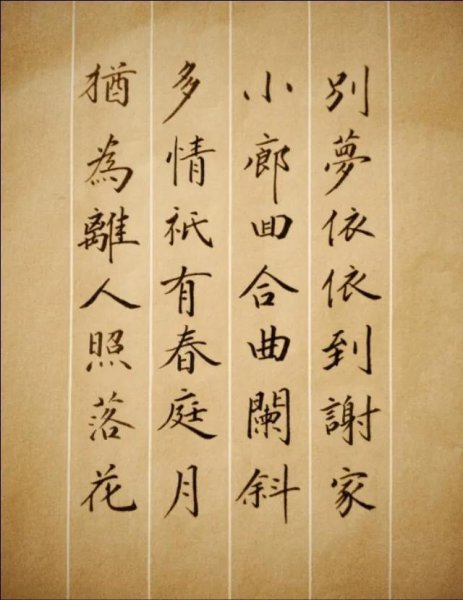 別夢依依到謝家
小廊回合曲闌斜
多情祇有春庭月
猶為離人照落花